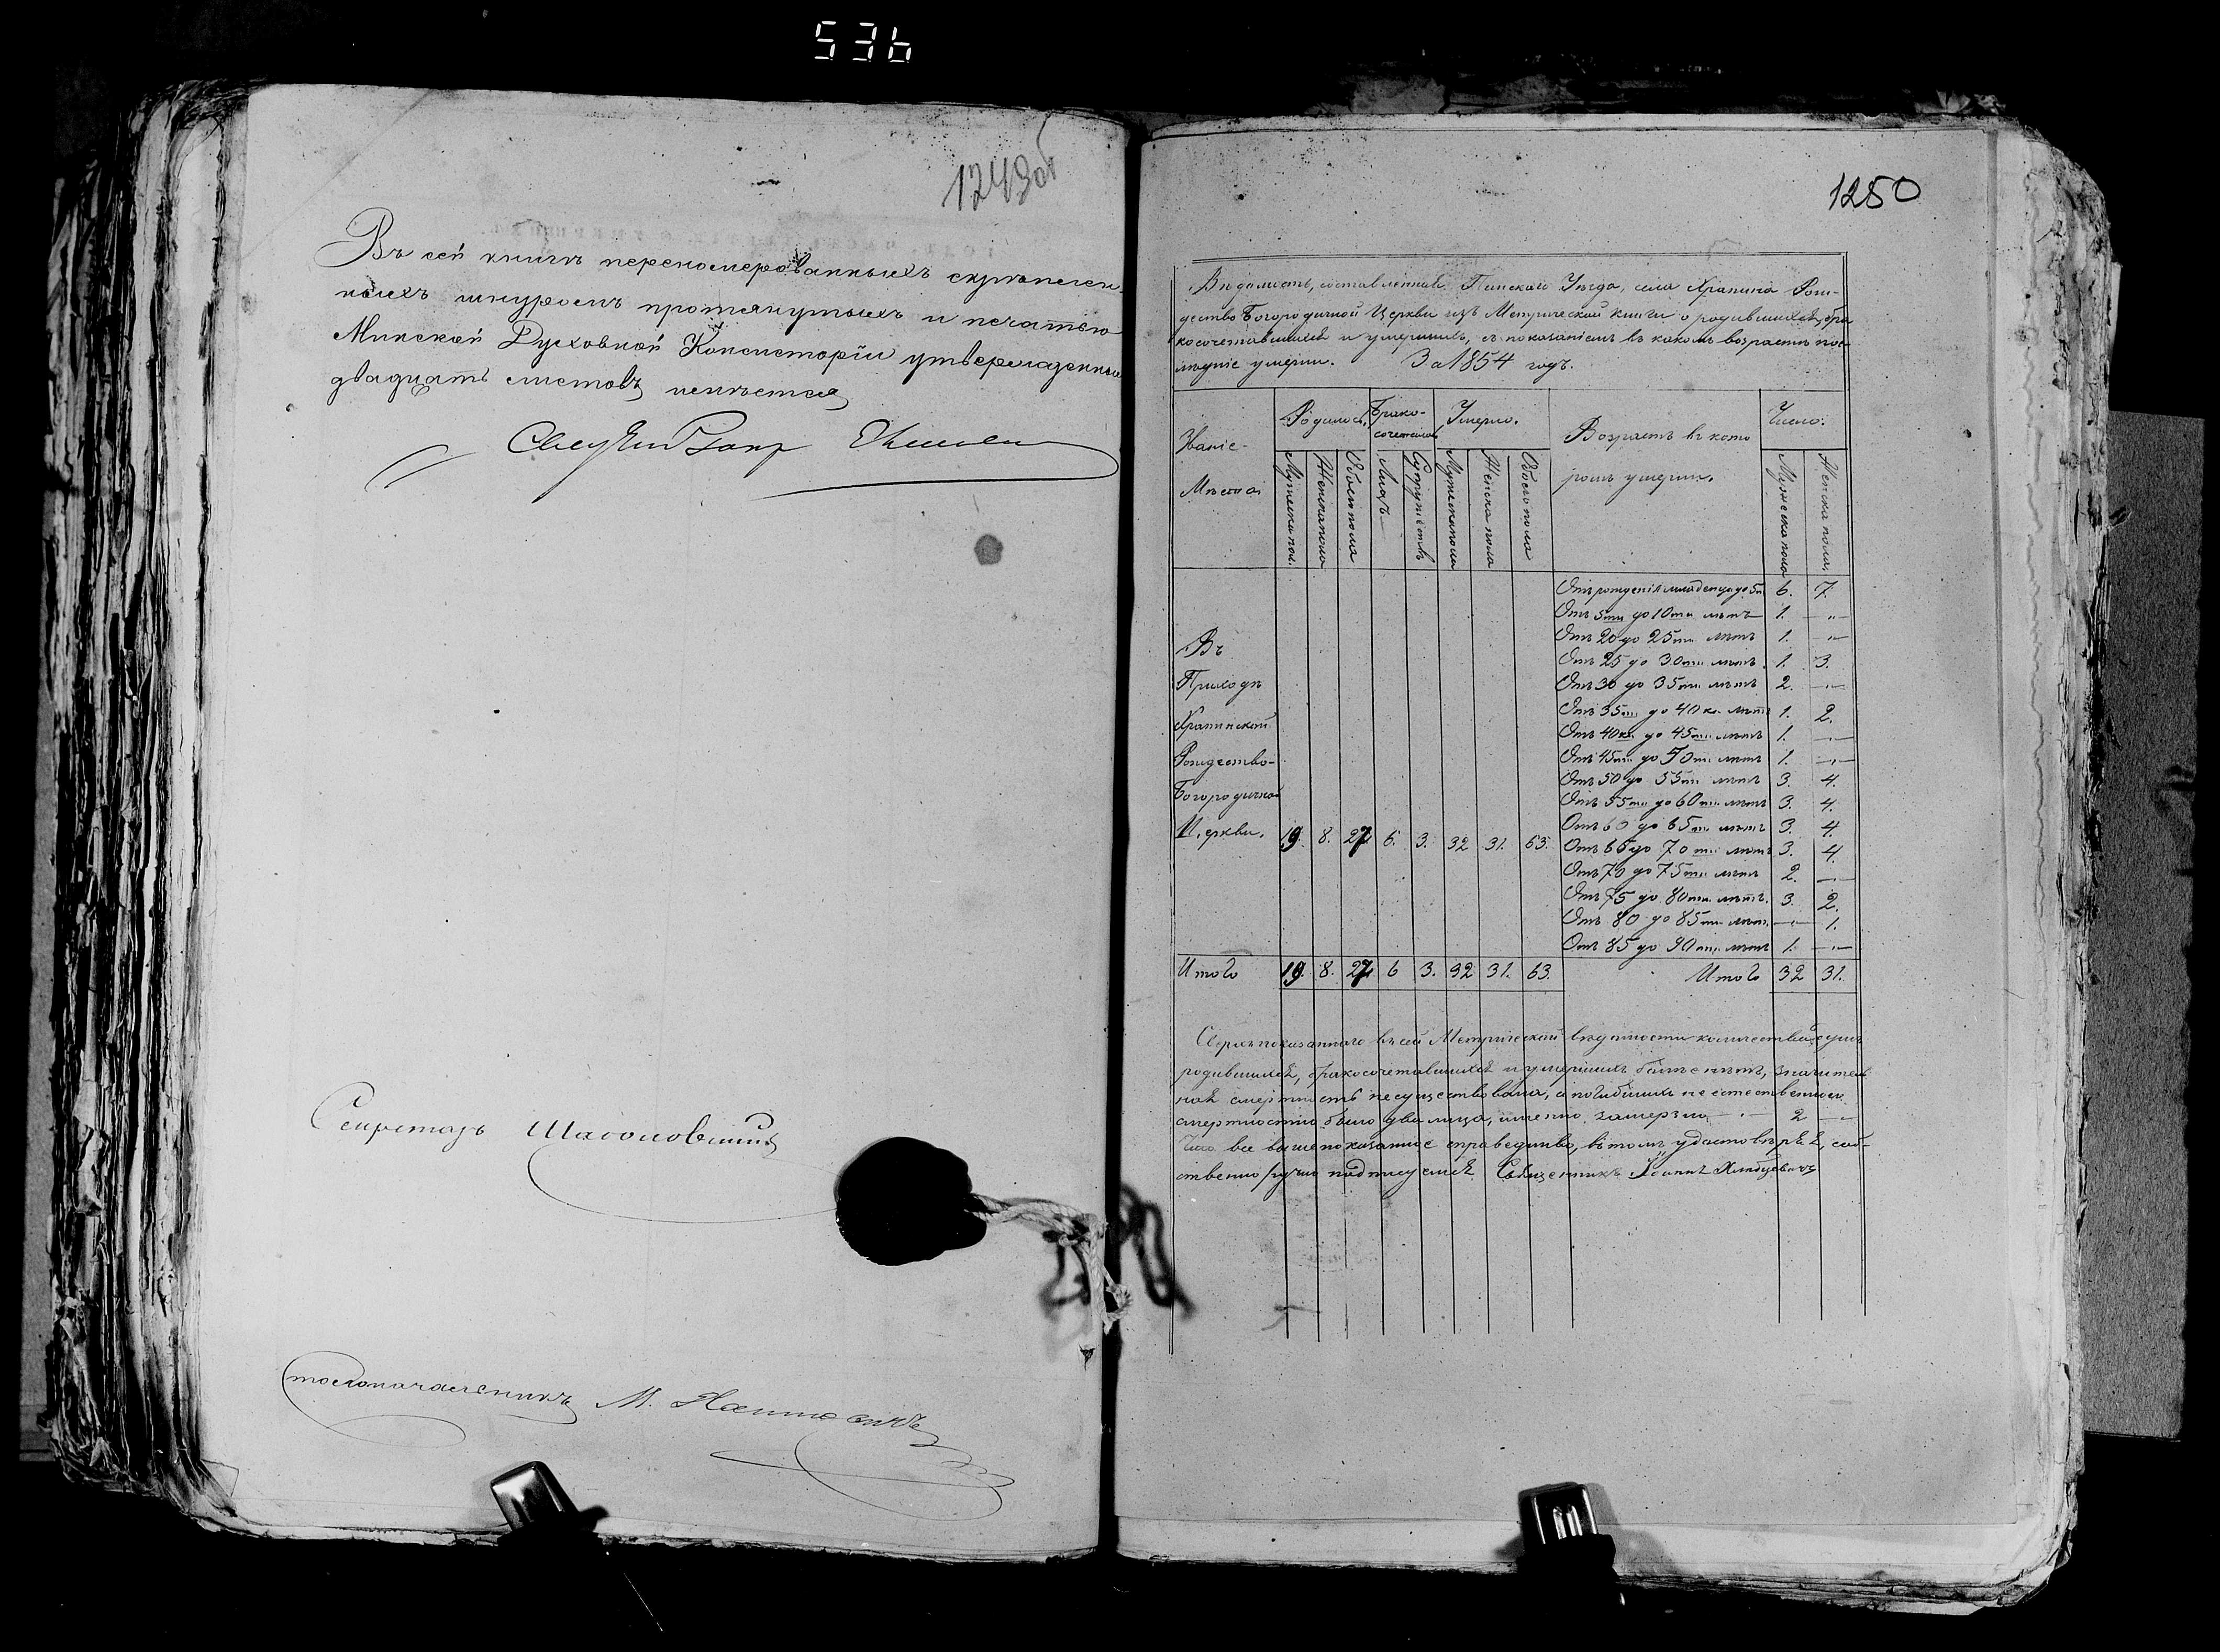 536
1249об
Въ сей книгѣ перекомерованныхъ скрѣплен-
ныхъ шнуромъ протянутыхъ и печатью
Минской Духовной Консисторіи утвержденны
двадцать листовъ имѣется
Секретарь
столоначальникъ М.
1250
Вѣдомость, составленная Пинскаго Уѣзда, села Храпина Рож-
дество Богородичной Церкви изъ Метрической книги о родившихся, бра
косочетавшихся и умершихъ, съ показаніемъ въ какомъ возрастѣ пос-
лѣдніе умерли. За 1854 годъ.
Званіе Мѣста
Родилось. Брако-сочеталось Умерло. Возрастъ въ кото ромъ умерли. Число.
Мужеска пол. Женска пола Обоего пола Лицъ Супружествъ Мужеска пола Женска пола Обоего пола Мужеска пола Женска пола.
Отъ рожденія младенца до 5ти 6. 7.
Отъ 5ти до 10ти лѣтъ 1. — " —
Отъ 20 до 25ти лѣтъ 1. — " —
Отъ 25 до 30ти лѣтъ 1. 3.
Отъ 30 до 35ти лѣтъ 2. — " —
Отъ 35ти до 40ка лѣтъ 1. 2.
Отъ 40ка до 45ти лѣтъ 1. — " —
Отъ 45ти до 50ти лѣтъ 1. — " —
Отъ 50 до 55ти лѣтъ 3. 4.
Отъ 55ти до 60ти лѣтъ 3. 4.
Отъ 60 до 65ти лѣтъ 3. 4.
Отъ 65 до 70ти лѣтъ 3. 4.
Отъ 70 до 75ти лѣтъ 2. — " —
Отъ 75 до 80ти лѣтъ. 3. 2.
Отъ 80 до 85ти лѣтъ. — " — 1.
Отъ 85 до 90ти лѣтъ 1. — " —
Въ
Приходѣ
Храпинской
Рождество-
Богородичной
Церкви. 19. 8. 27 6. 3. 32 31. 63.
Итого 19. 8. 27 6 3. 32 31. 63. Итого 32 31.
Сверхъ показаннаго въ сей Метрической вѣдомости количества
родившихся, бракосочетавшихся и умершихъ болѣе нѣтъ, значитель
ная смертность не существовала, а погибшихъ не естественною
смертностію было два лица, именно замерзло — " — 2 —
Что все вышепоказанное справедливо, въ томъ удостовѣряя, соб-
ственноручно подписуемся. Священникъ Іоаннъ